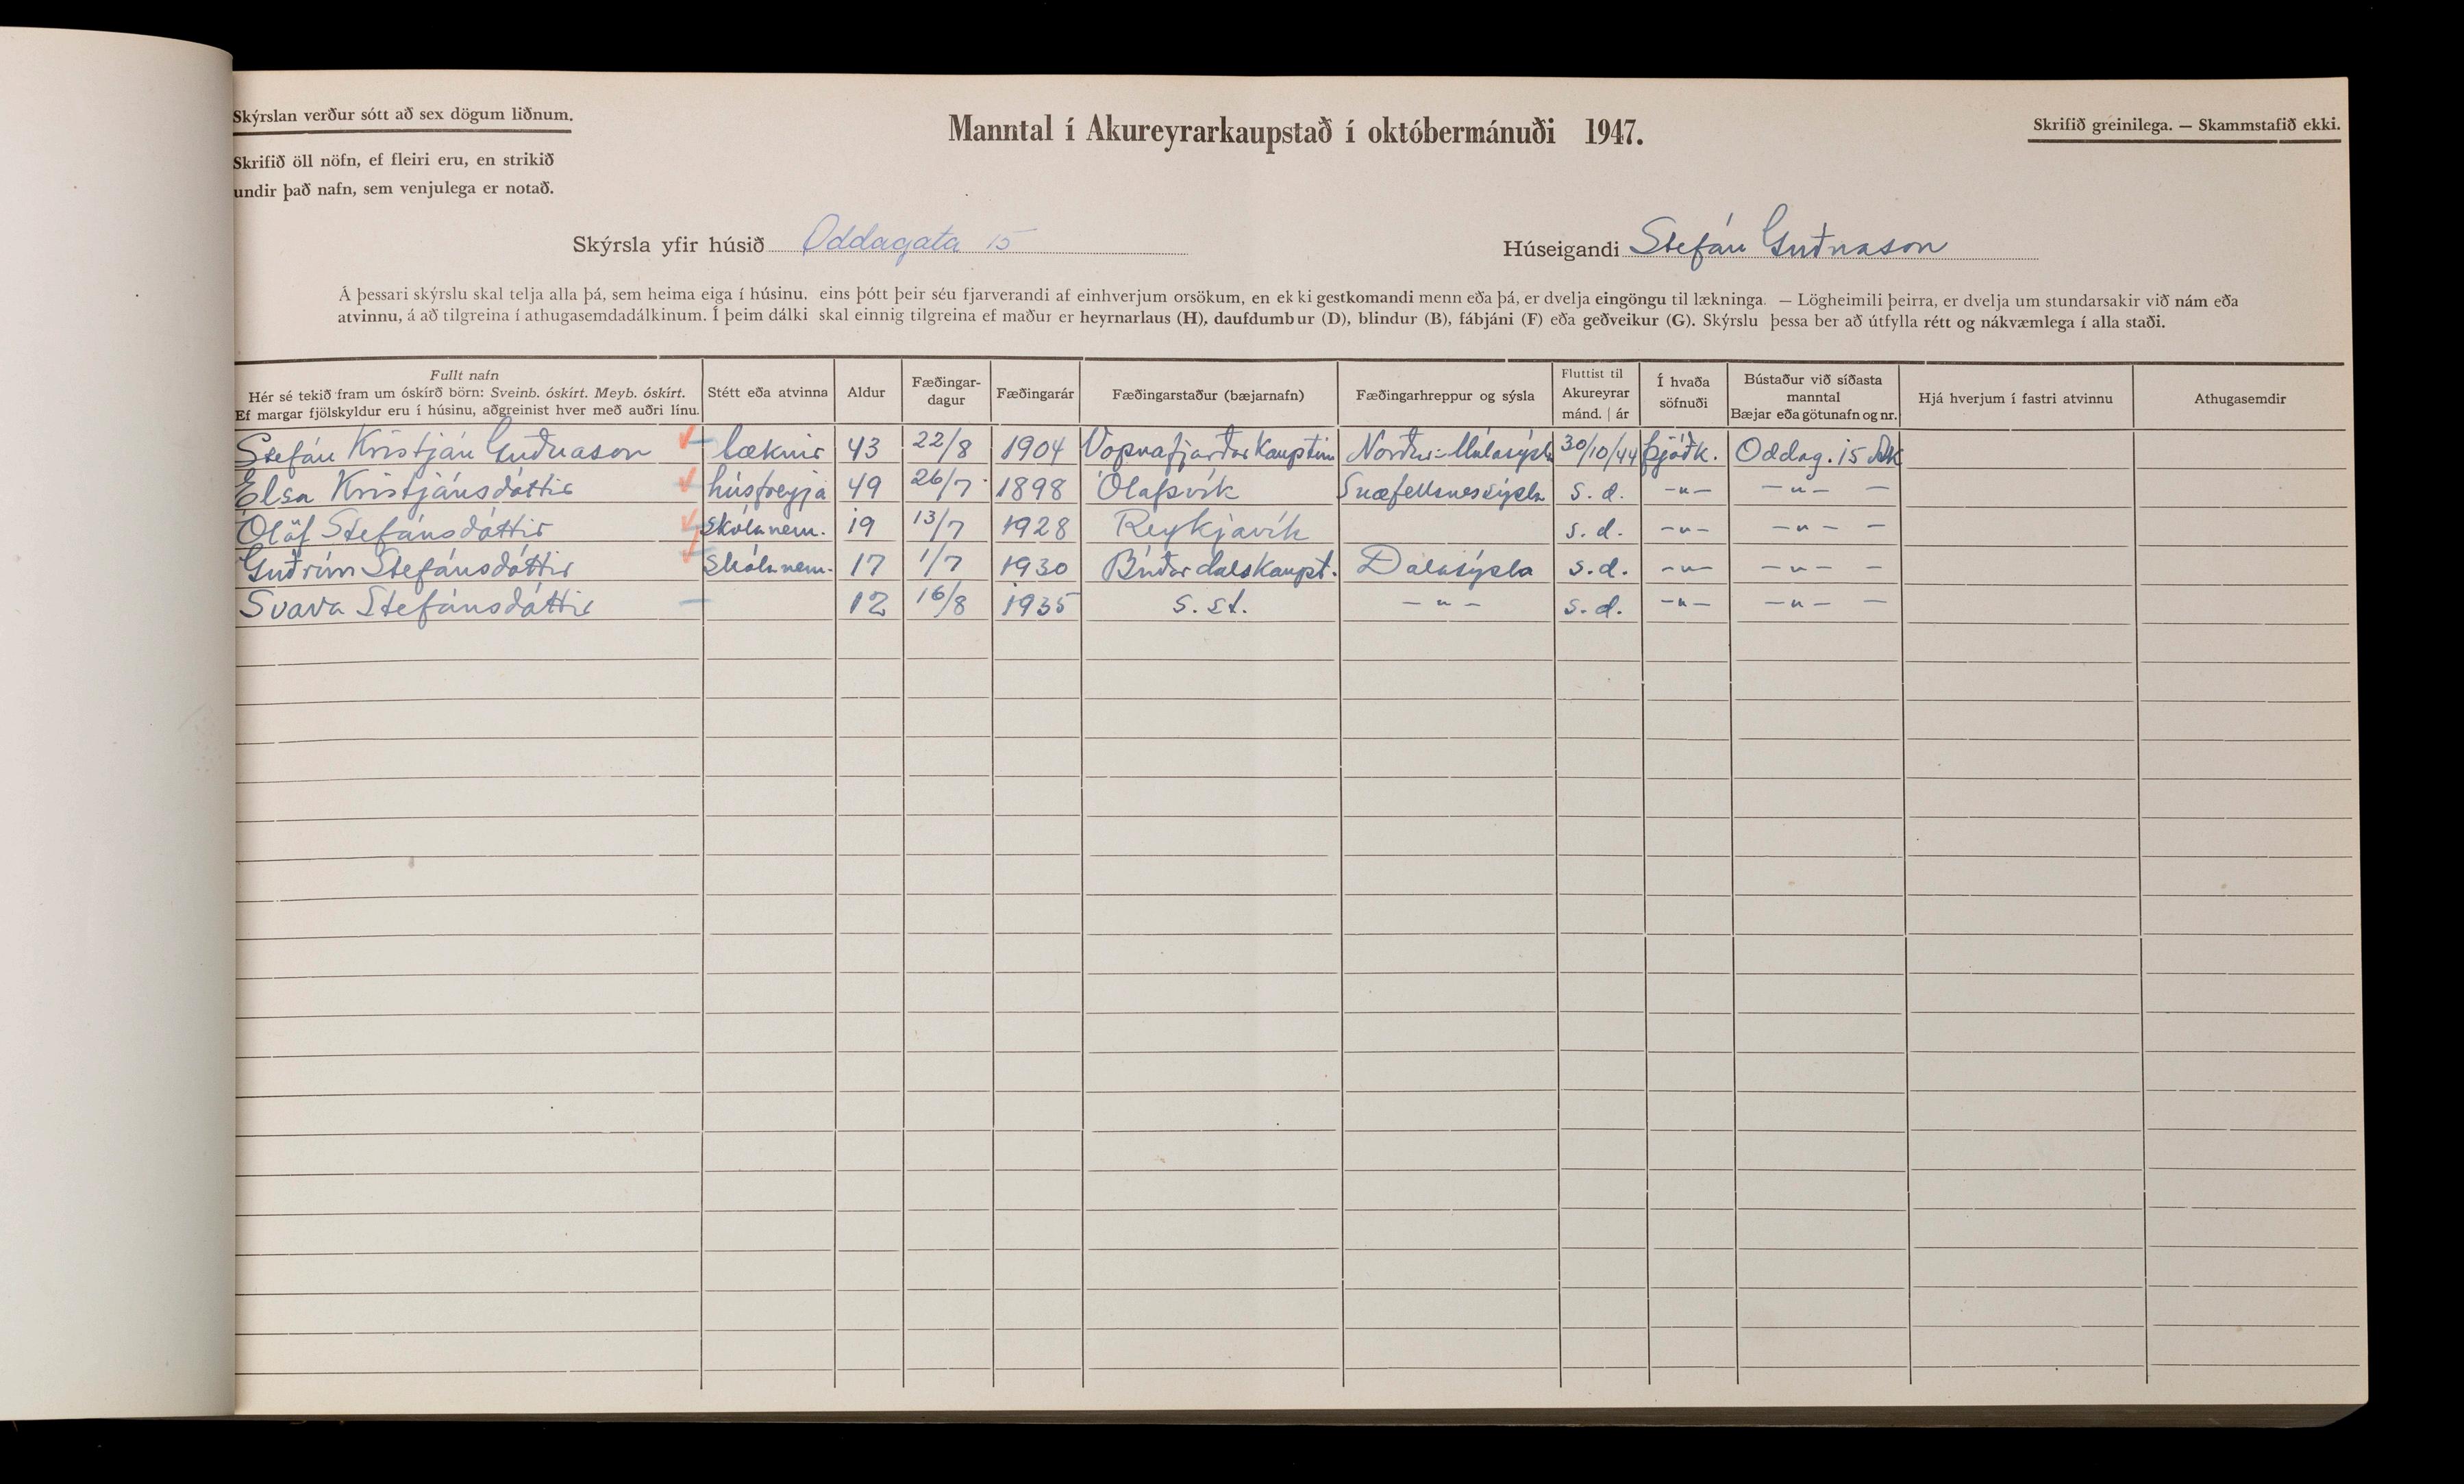 Skýrslan verður sótt að sex dögum liðnum.
Skrifið öll nöfn, ef fleiri eru, en strikið
undir það nafn, sem venjulega er notað.
Manntal í Akureyrarkaupstað í októbermánuði 1947.
Skrifið greinilega. — Skammstafið ekki.
Skýrsla yfir húsið Oddagata 15
Húseigandi Stefán Guðnason
Á þessari skýrslu skal telja alla þá, sem heima eiga í húsinu, eins þótt þeir séu fjarverandi af einhverjum orsökum, en ekki gestkomandi menn eða þá, er dvelja eingöngu til lækninga. — Lögheimili þeirra, er dvelja um stundarsakir við nám eða
atvinnu, á að tilgreina í athugasemdadálkinum. Í þeim dálki skal einnig tilgreina ef maður er heyrnarlaus (H), daufdumbur (D), blindur (B), fábjáni (F) eða geðveikur (G). Skýrslu þessa ber að útfylla rétt og nákvæmlega í alla staði.
Fullt nafn
Hér sé tekið fram um óskírð börn: Sveinb. óskírt. Meyb. óskírt.
Ef margar fjölskyldur eru í húsinu, aðgreinist hver með auðri línu.
Stétt eða atvinna
Aldur
Fæðingar-
dagur
Fæðingarár
Fæðingarstaður (bæjarnafn)
Fæðingarhreppur og sýsla
Fluttist til
Akureyrar
mánd. | ár
Í hvaða
söfnuði
Bústaður við síðasta
manntal
Bæjar eða götunafn og nr.
Hjá hverjum í fastri atvinnu
Athugasemdir
Stefán Kristján Guðnason læknir 43 22/8 1904 Vopnafjarðarkauptún Norður-Múlasýsla 30/10/44 Þjóðk. Oddag. 15 Ak
Elsa Kristjánsdóttir húsfreyja 49 26/7 1898 Ólafsvík Snæfellsnessýsla s. d. -"- -"- -
Ólöf Stefánsdóttir skólanem. 19 13/7 1928 Reykjavík s. d. -"- -"- -
Guðrún Stefánsdóttir skólanem. 17 1/7 1930 Búðardalskaupt. Dalasýsla s.d. -"- -"- -
Svava Stefánsdóttir 12 16/8 1935 s. st. -"- s. d. -"- -"- -